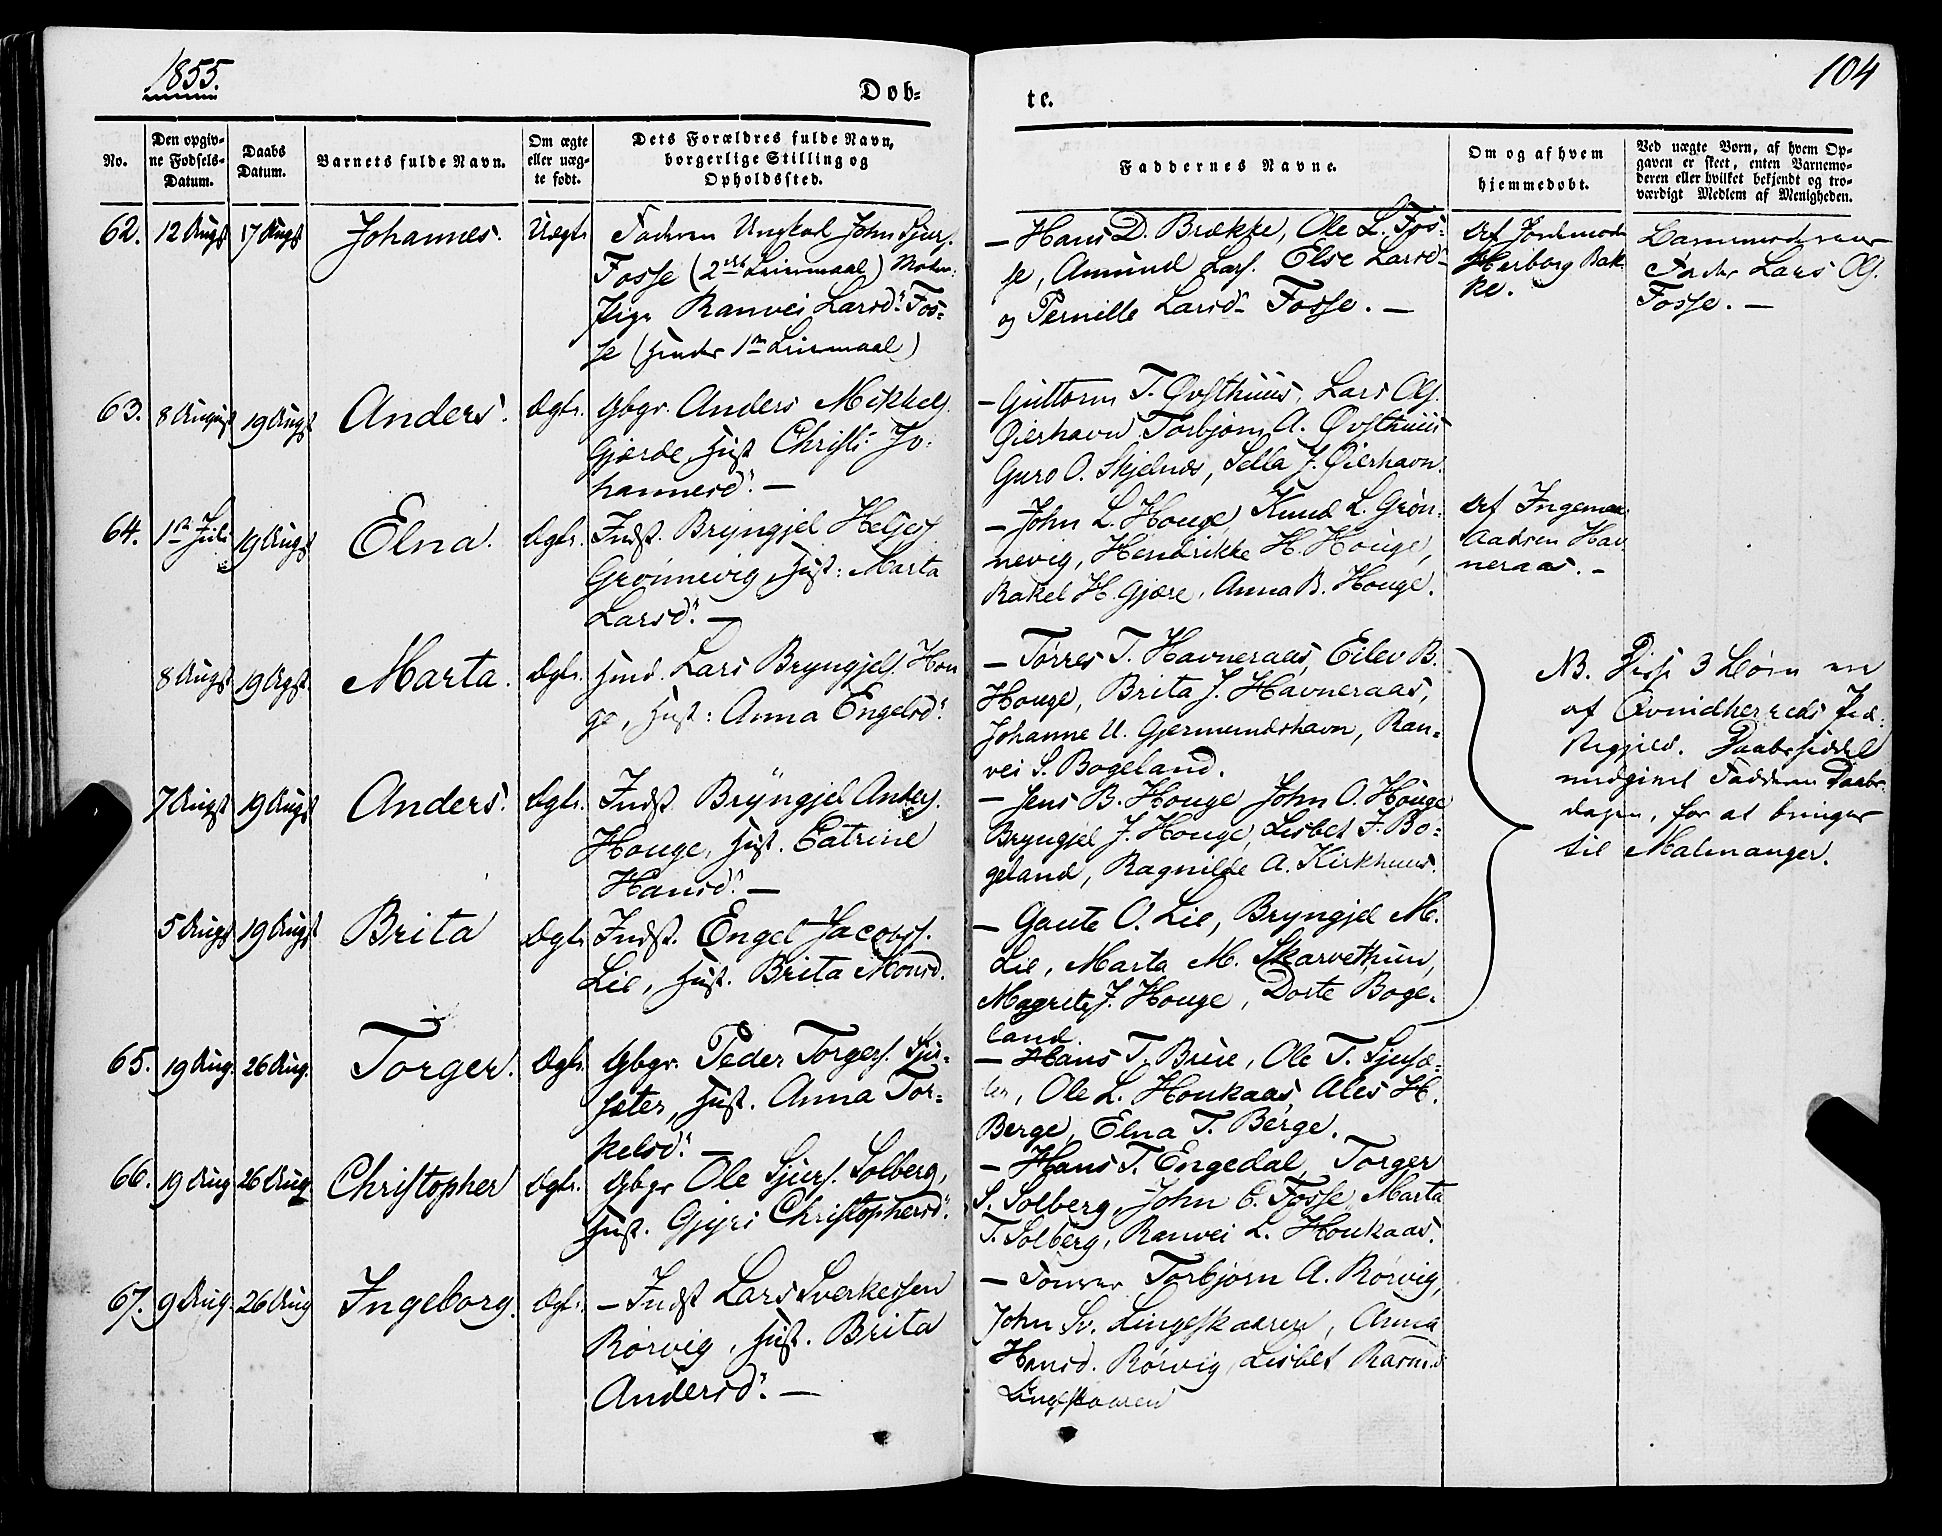 1855.
104
Dob-
te.
No.
Den opgiv-
ne Fodsels-
Datum.
Daabs
Datum.
Barnets fulde Navn.
Om ægte
eller uæg-
te født.
Dets Forældres fulde Navn,
borgerlige Stilling og
Opholdssted.
Faddernes Navne.
Om og af hvem
hjemmedobt.
Ved uægte Born, af hvem Op-
gaven er skeet, enten Barnemo-
deren eller hvilket bekjendt og tro-
værdigt Medlem af Menigheden.
62. 12 Augst 17 Augst Johannes. Uægte
Faderen Ungkarl John Sjurs.
Fosse (2det Leiermaal) Moder:
Pige Ranvei Larsd: Fos-
se (hendes 1te Leiermaal)
- Hans D. Brække, Ole L. Fos-
se, Amund Lars. Else Larsd-
og Pernille Larsd- Fosse. -
Af Jordmod
Herborg Bak-
ke.
Barnemoderens
Fader Lars Ols.
Fosse. -
63. 8 August 19 Augst Anders. Ægte.
Gbgr. Anders Mikkels.
Gjerde, Hust. Christi Jo-
hannesd: -
- Guttorm T. Øvsthuus, Lars Ols.
Øierhavn Torbjørn A. Øvsthuus
Guro O. Skjelnæs, Sella J. Øierhavn.
64. 1ste Juli 19 Augst Elna. Ægte.
Indst. Bryngjel Heljes.
Grønnevig, Hust: Marta
Larsd: -
- John L. Houge, Knud L. Grøn-
nevig, Hendrikke H. Houge,
Rakel H. Gjære, Anna B. Houge.
Af Ingemar
Aadsen Hav
neraas. -
8 Augst 19 Augst Marta. Ægte.
Huusmd. Lars Bryngjels. Hou
ge, Hust: Anna Engelsd:
- Tørres T. Havneraas, Eilev B.
Houge, Brita J. Havneraas,
Johanne U. Gjermundshavn, Ran-
vei S. Bogeland.
NB. Disse 3 Børn ere
af Qvindherreds Præ-
stegjeld. Daabsseddel
medgivet Fadderne Daabs-
dagen, for at bringes
til Malmanger.
7 Augst 19 Augst Anders. Ægte.
Indst. Bryngjel Anders.
Houge, Hust. Catrine
Hansd: -
- Jens B. Houge, John O. Houge
Bryngjel J. Houge, Lisbet J. Bo-
geland, Ragnilde A. Kirkhuus.
5 Augst 19 Augst Brita Ægte.
Indst. Engel Jacobs.
Lie, Hust. Brita Monsd.
- Gaute O. Lie, Bryngjel M.
Lie, Marta M. Skarvethun,
Magrete J. Houge, Dorte Boge-
land.
65. 19 Aug. 26 Aug. Torger. Ægte.
Gbgr. Peder Torgers. Sju-
sæter, Hust. Anna Tor-
kelsd: -
- Hans T. Brue, Ole T. Sjusæ-
ter, Ole L. Houkaas, Ales H.
Berge, Elna T. Berge.
66. 19 Aug 26 Aug Christopher Ægte.
Gbgr Ole Sjurs. Solberg,
Hust. Gjyri Christophersd:
- Hans T. Engedal, Torger
S. Solberg, John O. Fosse, Marta
T. Solberg, Ranvei L. Houkaas.
67. 9 Aug. 26 Aug Ingeborg. Ægte.
- Indst Lars Sverkessen
Rørvig, Hust. Brita
Andersd: -
- Torbjørn A. Rørvig,
John Sv. Lingeskaaren, Anna
Hansd. Rørvig, Lisbet Rasmd.
Lingeskaaren